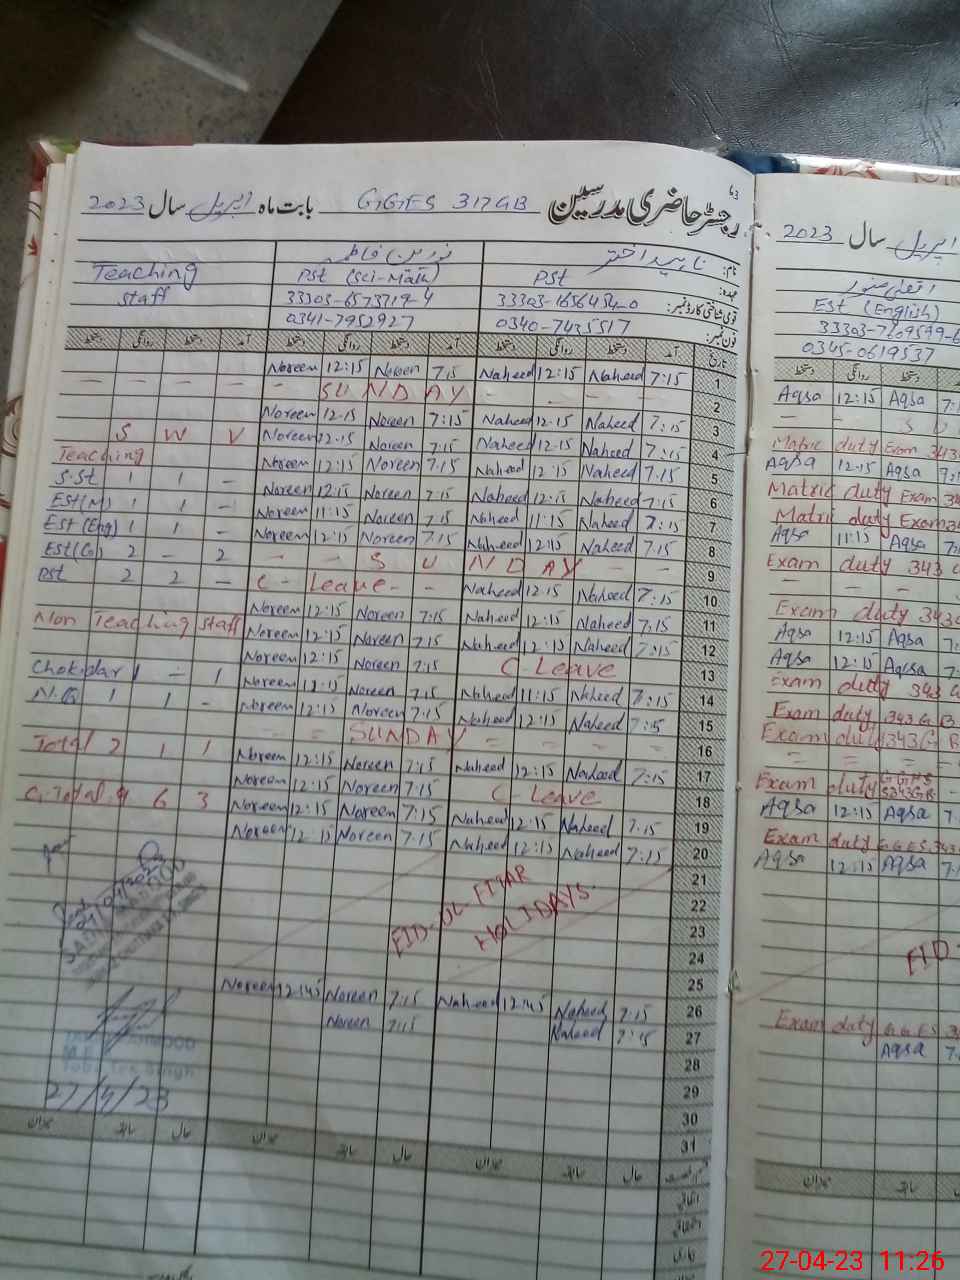 رجسٹر حاضری مدرسین GGES 317GB بابت ماہ اپریل سال 2023
نام: ناہید اختر نورین فاطمہ
عہدہ: PST PST (Sci-Math) Teaching
قومی شناختی کارڈ نمبر: 33303-1656454-0 33303-6573719-4 Staff
فون نمبر: 0340-7435517 0341-7952927
تاریخ آمد دستخط روانگی دستخط آمد دستخط روانگی دستخط آمد دستخط روانگی دستخط
1 7:15 Naheed 12:15 Naheed 7.15 Noreen 12:15 Noreen
2 SUNDAY
3 7:15 Naheed 12:15 Naheed 7:15 Noreen 12.15 Noreen
4 7:15 Naheed 12.15 Naheed 7:15 Noreen 12.15 Noreen
5 7.15 Naheed 12:15 Naheed 7.15 Noreen 12:15 Noreen
6 7:15 Naheed 12:15 Naheed 7:15 Noreen 12:15 Noreen
7 7:15 Naheed 11:15 Naheed 7.15 Noreen 11:15 Noreen
8 7.15 Naheed 12:15 Naheed 7.15 Noreen 12:15 Noreen
9 SUNDAY
10 7:15 Naheed 12.15 Naheed C-Leave
11 7:15 Naheed 12:15 Naheed 7:15 Noreen 12:15 Noreen
12 7:15 Naheed 12:15 Naheed 7.15 Noreen 12:15 Noreen
13 C-Leave 7:15 Noreen 12:15 Noreen
14 7:15 Naheed 11:15 Naheed 7.15 Noreen 12:15 Noreen
15 7:15 Naheed 12:15 Naheed 7.15 Noreen 12:15 Noreen
16 SUNDAY
17 7:15 Naheed 12:15 Naheed 7:15 Noreen 12:15 Noreen
18 C-Leave 7:15 Noreen 12:15 Noreen
19 7.15 Naheed 12:15 Naheed 7:15 Noreen 12:15 Noreen
20 7:15 Naheed 12:15 Naheed 7.15 Noreen 12:15 Noreen
21
22
23
24
25
EID-UL-FITAR
HOLIDAYS
26 7:15 Naheed 12:45 Naheed 7:15 Noreen 12:45 Noreen
27 7:15 Naheed 7:15 Noreen
28
29
30
31
S W V
Teaching
S.St 1 1 -
Est(M) 1 1 -
Est(Eng) 1 1 -
Est(G) 2 - 2
Pst 2 2 -
Non Teaching Staff
Chokidar 1 - 1
N.Q 1 1 -
Total 2 1 1
G.Total 9 6 3
27/4/23
حال سابقہ میزان حال سابقہ میزان حال سابقہ میزان
اتفاقی
2023 سال اپریل
Est (English)
33303-7609599-6
0345-0619537
دستخط روانگی دستخط
Aqsa 12:15 Aqsa
Matric duty Exam 343
Aqsa 12:15 Aqsa
Matric duty Exam 34
Matric duty Exam 34
Aqsa 11:15 Aqsa
Exam duty 343
Exam duty 343
Aqsa 12:15 Aqsa
Aqsa 12:15 Aqsa
Exam duty 343
Exam duty 343 GB
Exam duty 343G
Exam duty GGHS
343GB
Aqsa 12:15 Aqsa
Exam duty GGES 343
Aqsa 12:15 Aqsa
EID
Exam duty GGES
Aqsa
دستخط روانگی
میزان سابقہ
27-04-23 11:26